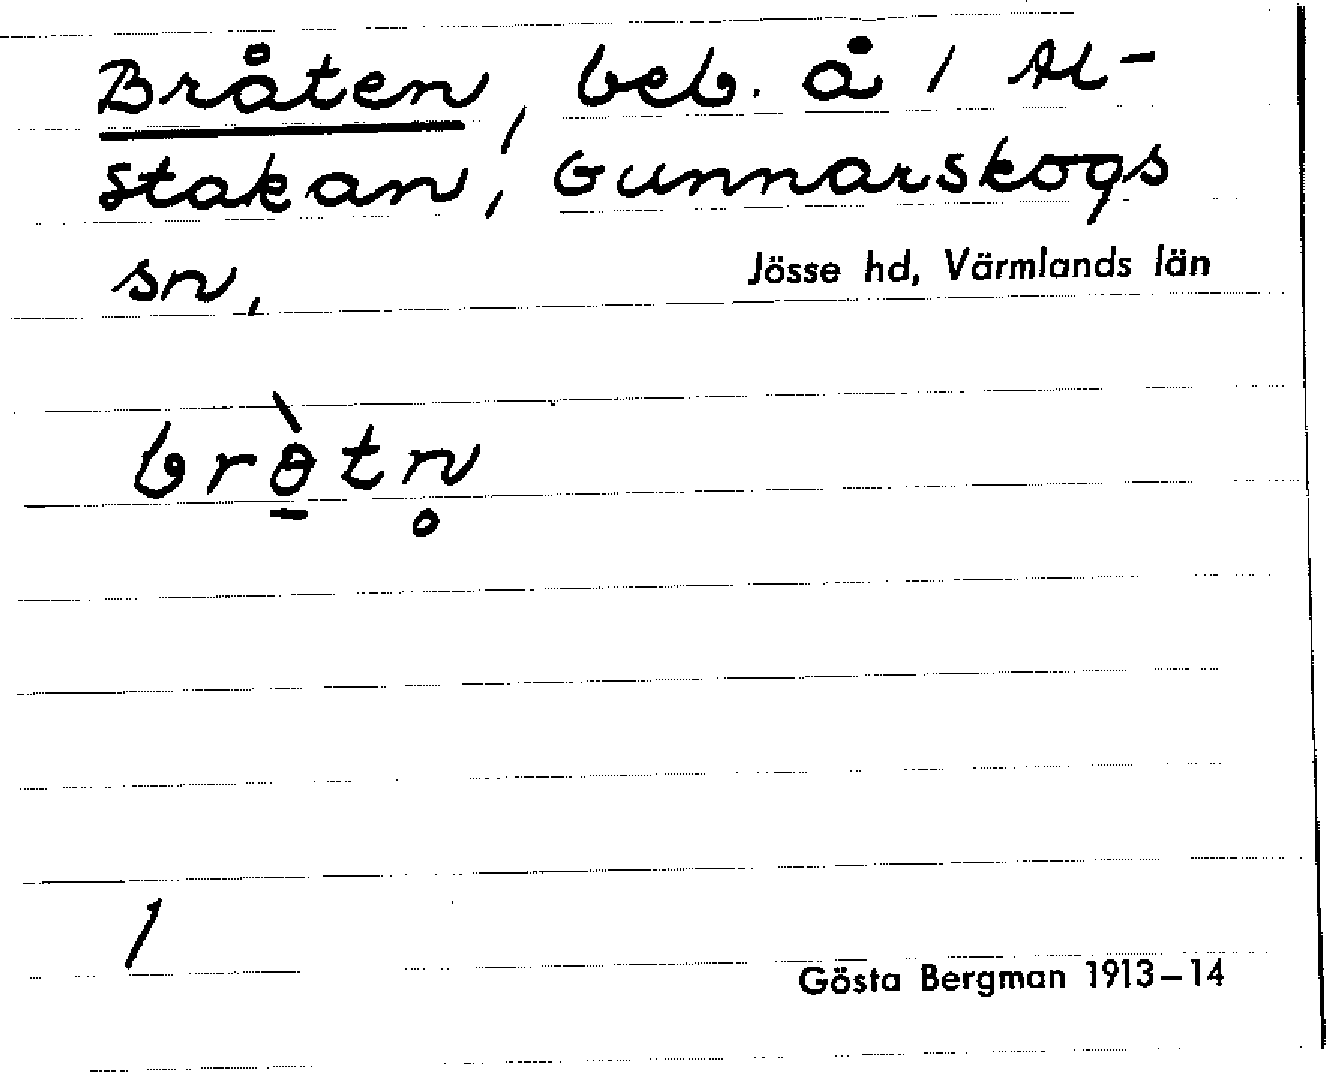 Bråten, beb. å 1 Al-
stakan, Gunnarskogs
sn, Jösse hd, Värmlands län
brɵ̠̀tn̥
1
Gösta Bergman 1913–14